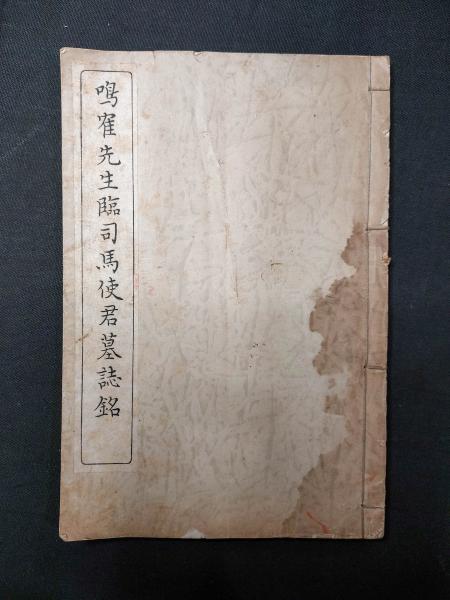 鳴隺先生臨司馬使君墓誌銘